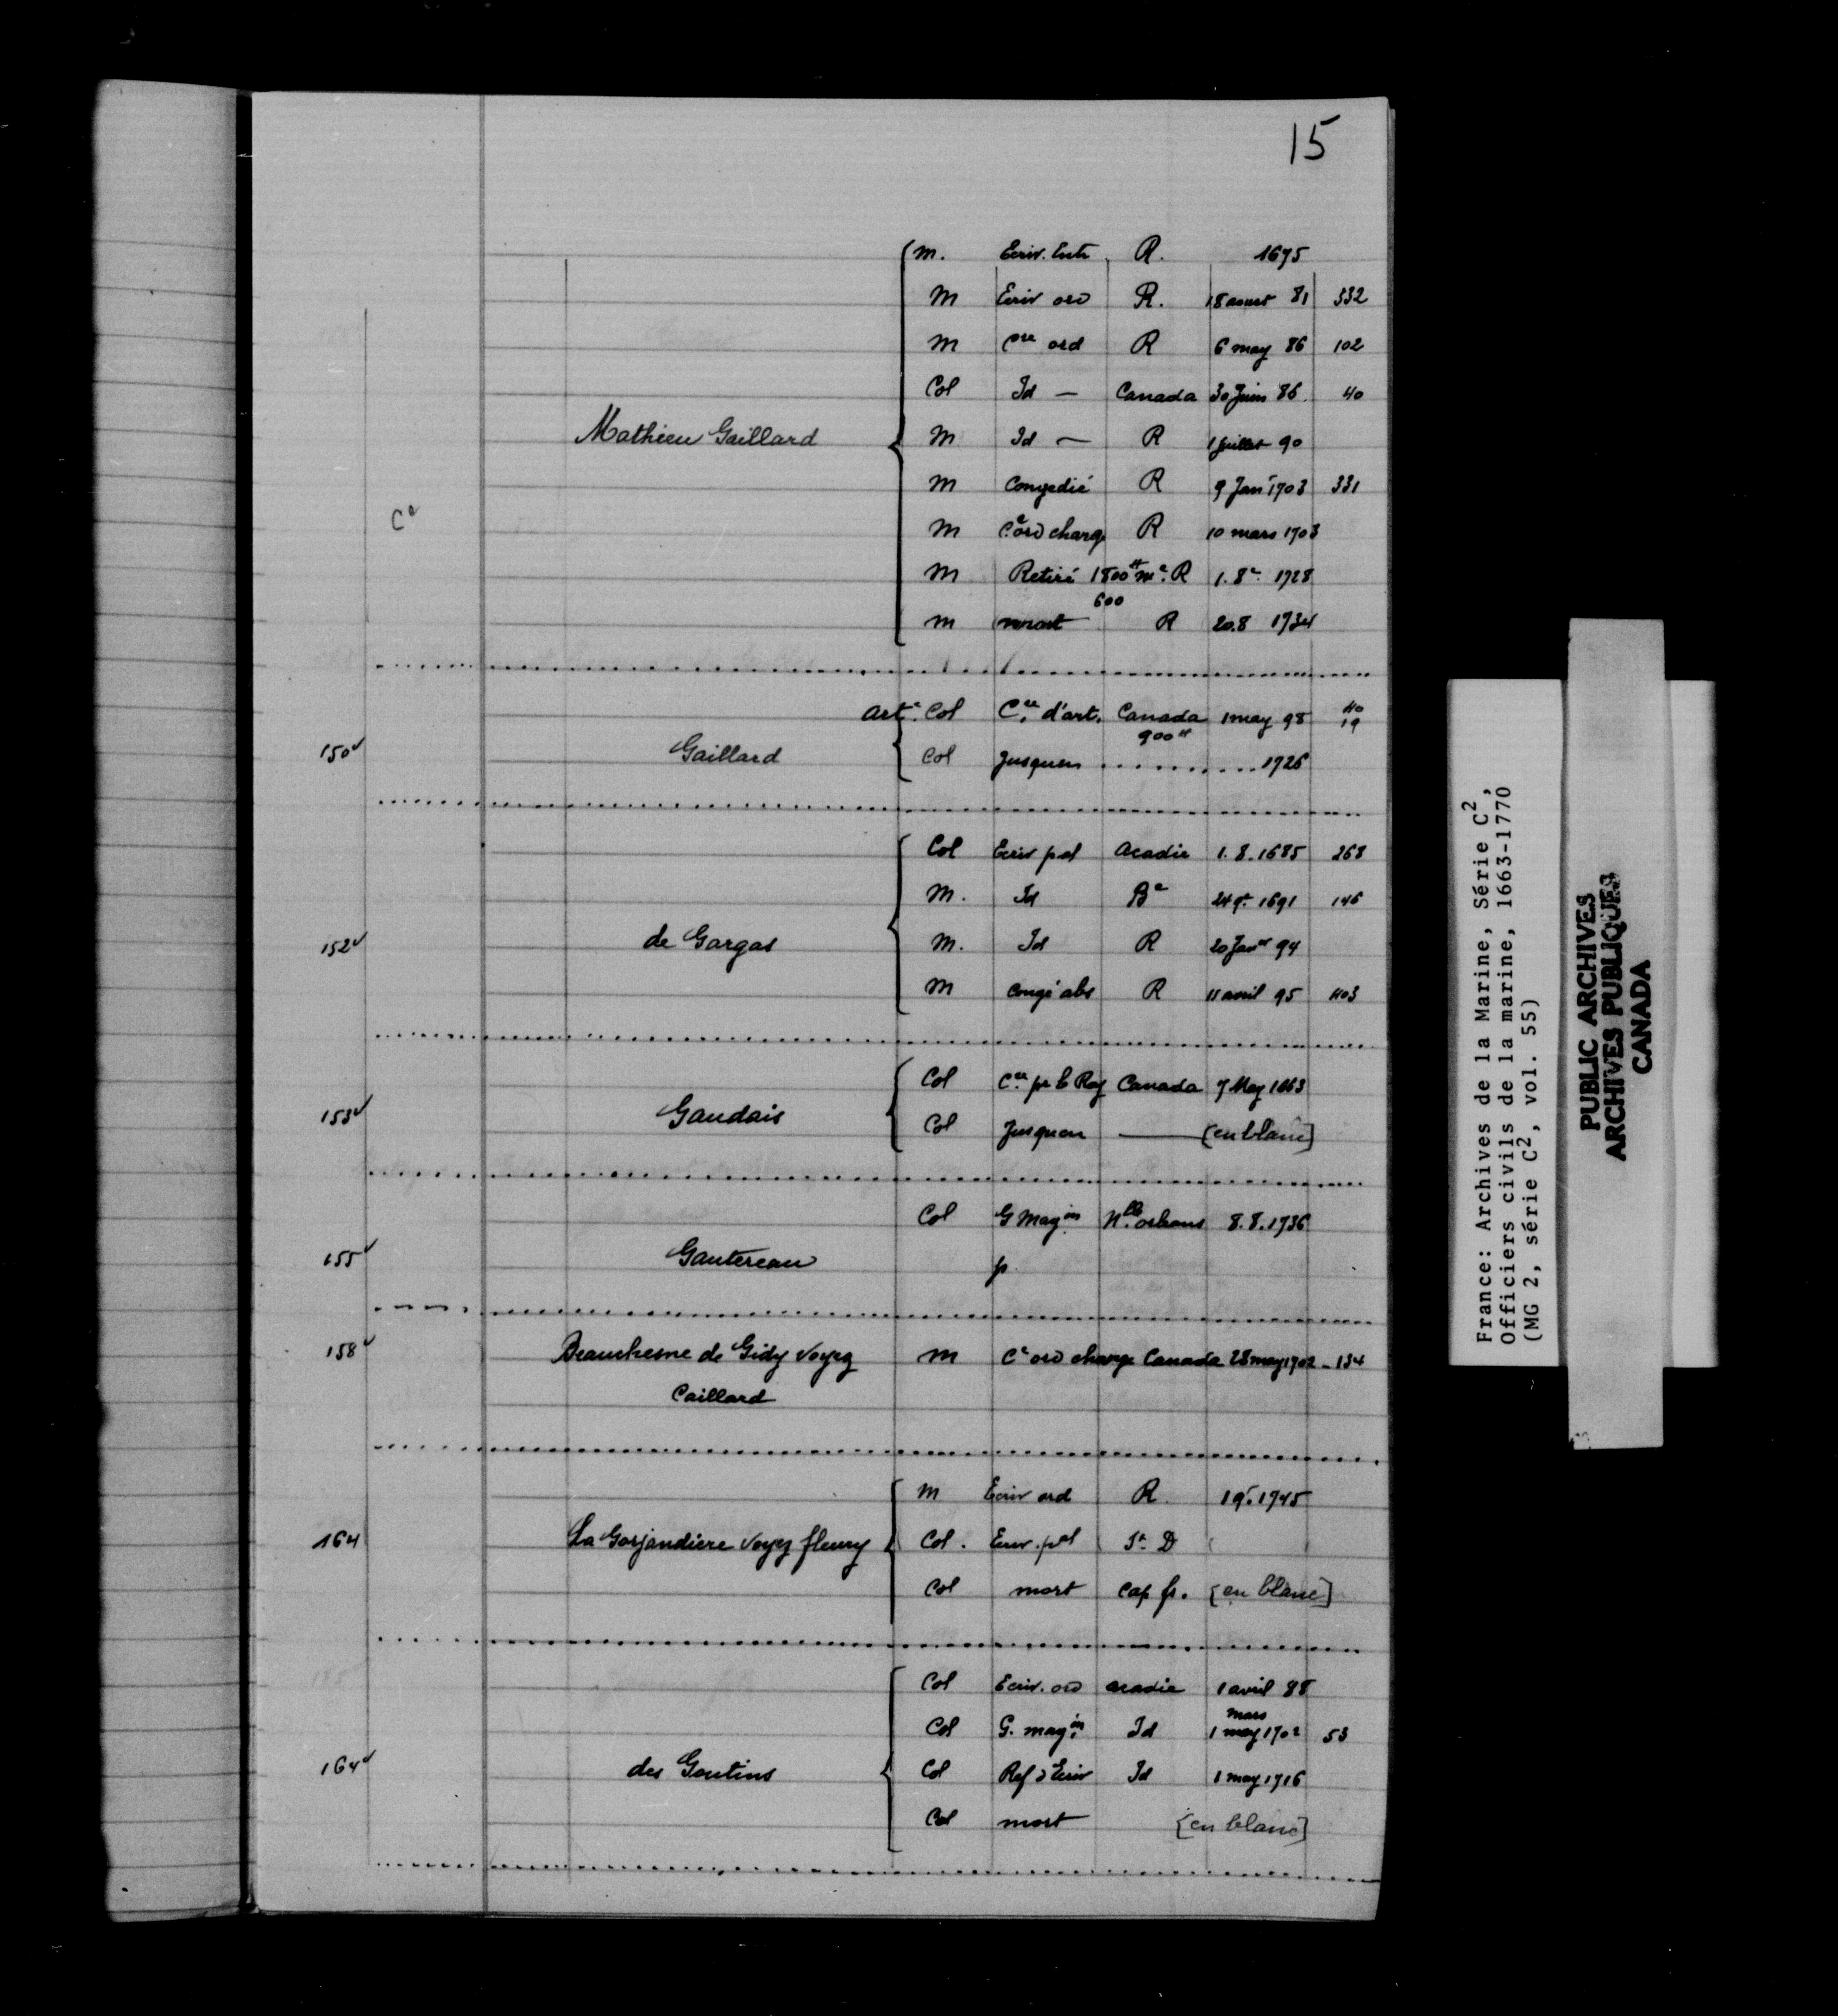 15
m. Ecriv. Extr. R. 1675
M Ecriv ord R. 18 aoust 81 332
M Cre ord R 6 may 86 102
Col Id — Canada 30 Juin 86. 40
Mathieu Gaillard M Id — R 1 juillet 90
M Congedié R 9 Janr 1703 331
Ce
M Ce ord charg R 10 mars 1703
M Retiré 1800# me. R 1. 8e. 1728
600
M mort R 20.8 1734
art.e Col Cre d'art. Canada 1 may 98 40 19
900#
150v Gaillard Col Jusquen .......... 1726
Col Ecriv pal Acadie 1. 8. 1685 268
M. Id Be 24 9e. 1691 146
152v de Gargas M. Id R 20 Janer 94
M Congé abs R 11 avril 95 403
Col Cre pr le Roy Canada 7 May 1663
153v Gaudais Col Jusquen — [en blanc]
Col G Magin Nlle. orleans 8. 8. 1736
155v Gautereau p
158v Beauchesne de Gidy voyez M Ce ord charge Canada 28 may 1702 - 134
Caillard
M Ecriv ord R. 1 9e. 1745
164 La Gorjandiere voyez fleury Col. Ecriv. pal St. D
Col mort Cap fr. [en blanc]
Col Ecriv. ord acadie 1 avril 88
mars
Col G. magin. Id 1 may 1702 53
164v des Goutins Col Ref d'Ecriv Id 1 may 1716
Col mort [en blanc]
France: Archives de la Marine, Série C2,
Officiers civils de la marine, 1663-1770
(MG 2, série C2, vol. 55)
PUBLIC ARCHIVES
ARCHIVES PUBLIQUES
CANADA